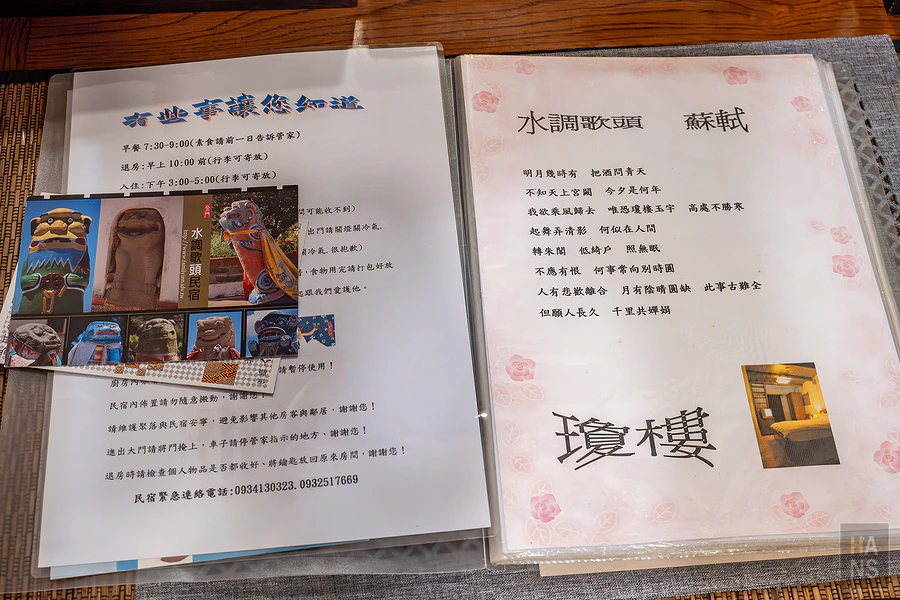 有些事讓您知道
早餐 7:30-9:00(素食請前一日告訴管家)
退房:早上 10:00 前(行李可寄放)
入住:下午 3:00-5:00(行李可寄放)
間可能收不到)
出門請關燈關冷氣.
關冷氣.很抱歉)
食物用完請打包好放
起跟我們愛護他。
請暫停使用!
廚房內
民宿內佈置請勿隨意搬動,謝謝您!
請維護聚落與民宿安寧,避免影響其他房客與鄰居,謝謝您!
進出大門請將門掩上,車子請停管家指示的地方、謝謝您!
退房時請檢查個人物品是否都收好、將鑰匙放回原來房間,謝謝您!
民宿緊急連絡電話:0934130323. 0932517669
金門
水調歌頭民宿
水調歌頭 蘇軾
明月幾時有 把酒問青天
不知天上宮闕 今夕是何年
我欲乘風歸去 唯恐瓊樓玉宇 高處不勝寒
起舞弄清影 何似在人間
轉朱閣 低綺戶 照無眠
不應有恨 何事常向別時圓
人有悲歡離合 月有陰晴圓缺 此事古難全
但願人長久 千里共嬋娟
瓊樓
HANS